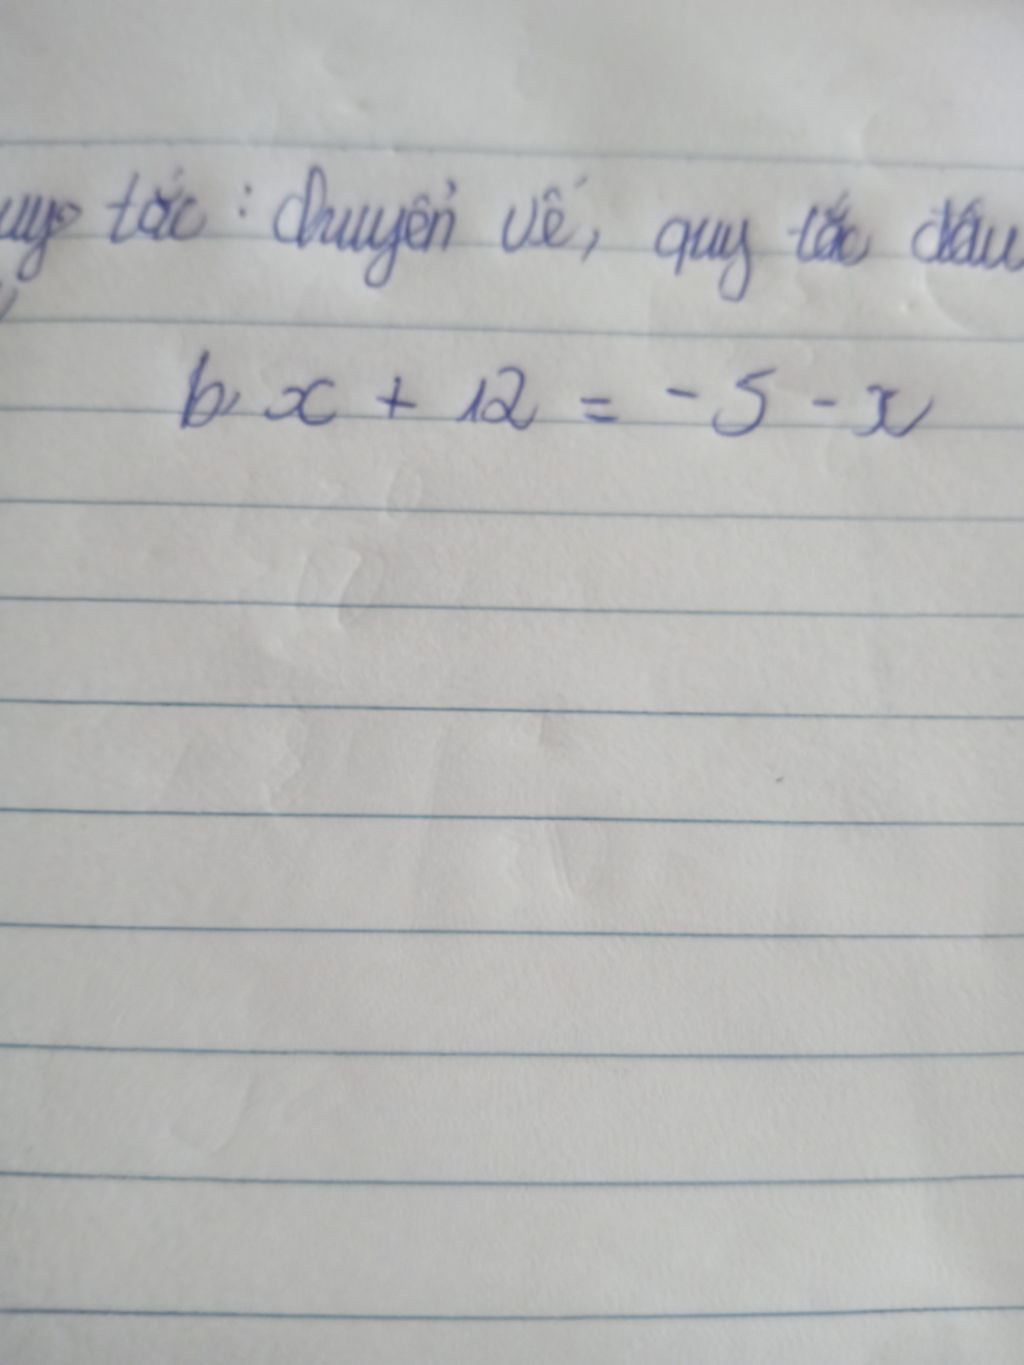 tắc : chuyển vế, quy tắc dấu
b, x + 12 = -5 - x